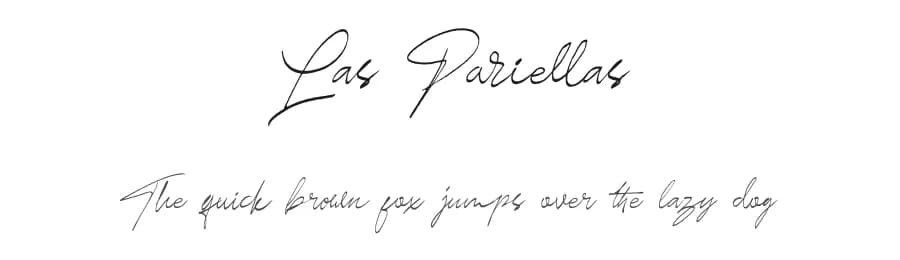 Las Pariellas
The quick brown fox jumps over the lazy dog